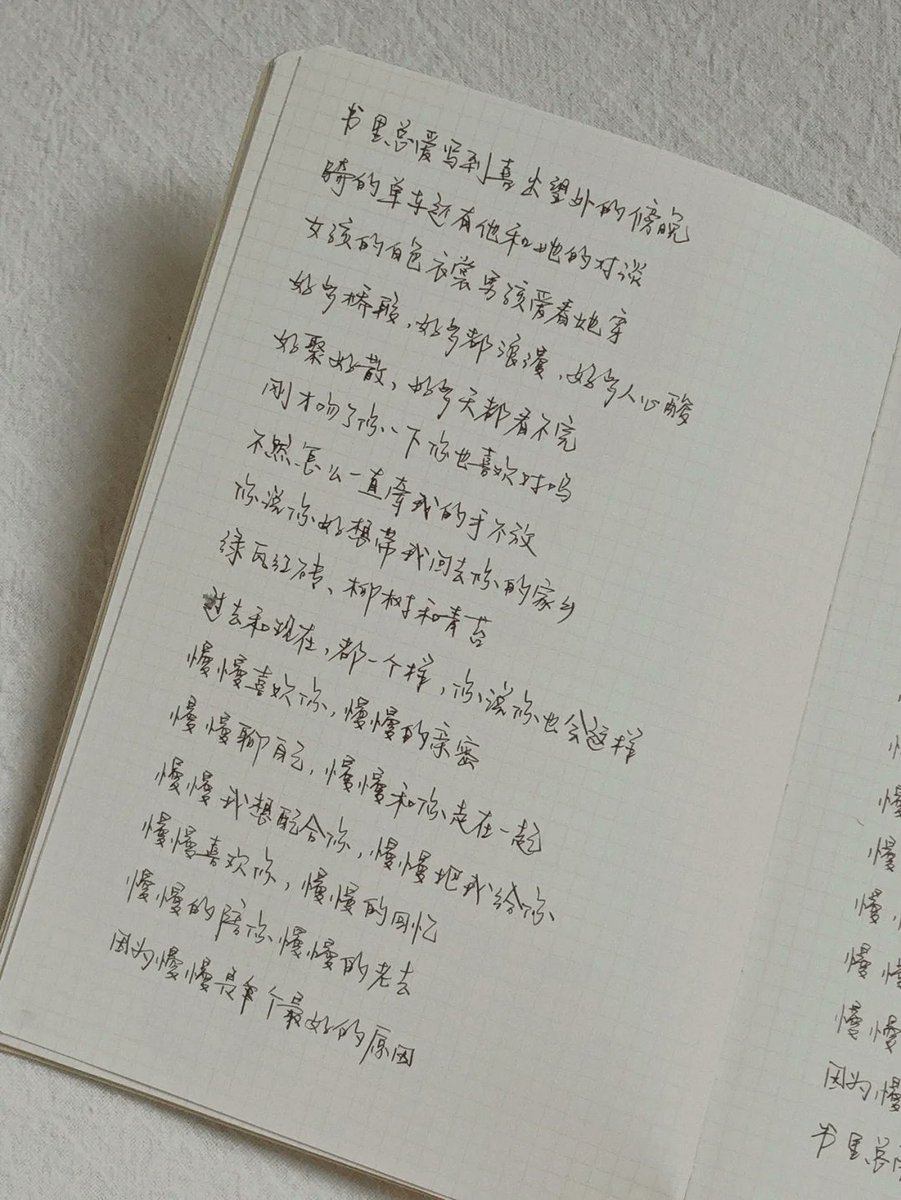 书里总爱写到喜出望外的傍晚
骑的单车还有他和她的对谈
女孩的白色衣裳男孩爱看她穿
好多桥段，好多都浪漫，好多人心酸
好聚好散，好多天都看不完
刚才吻了你一下你也喜欢对吗
不然怎么一直牵我的手不放
你说你好想带我回去你的家乡
绿瓦红砖、柳树和青苔
过去和现在，都一个样，你说你也会这样
慢慢喜欢你，慢慢的亲密
慢慢聊自己，慢慢和你走在一起
慢慢我想配合你，慢慢把我给你
慢慢喜欢你，慢慢的回忆
慢慢的陪你慢慢的老去
因为慢慢是个最好的原因
慢
慢
慢慢
慢
慢慢
慢慢
因为慢
书里总